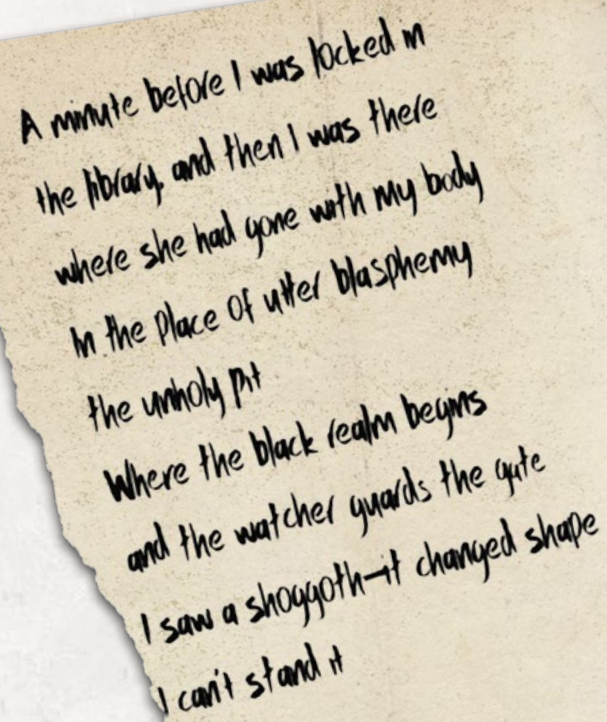 A minute before I was locked in
the library, and then I was there
where she had gone with my body
In the place of utter blasphemy
the unholy pit
Where the black realm begins
and the watcher guards the gate
I saw a shoggoth—it changed shape
I can't stand it